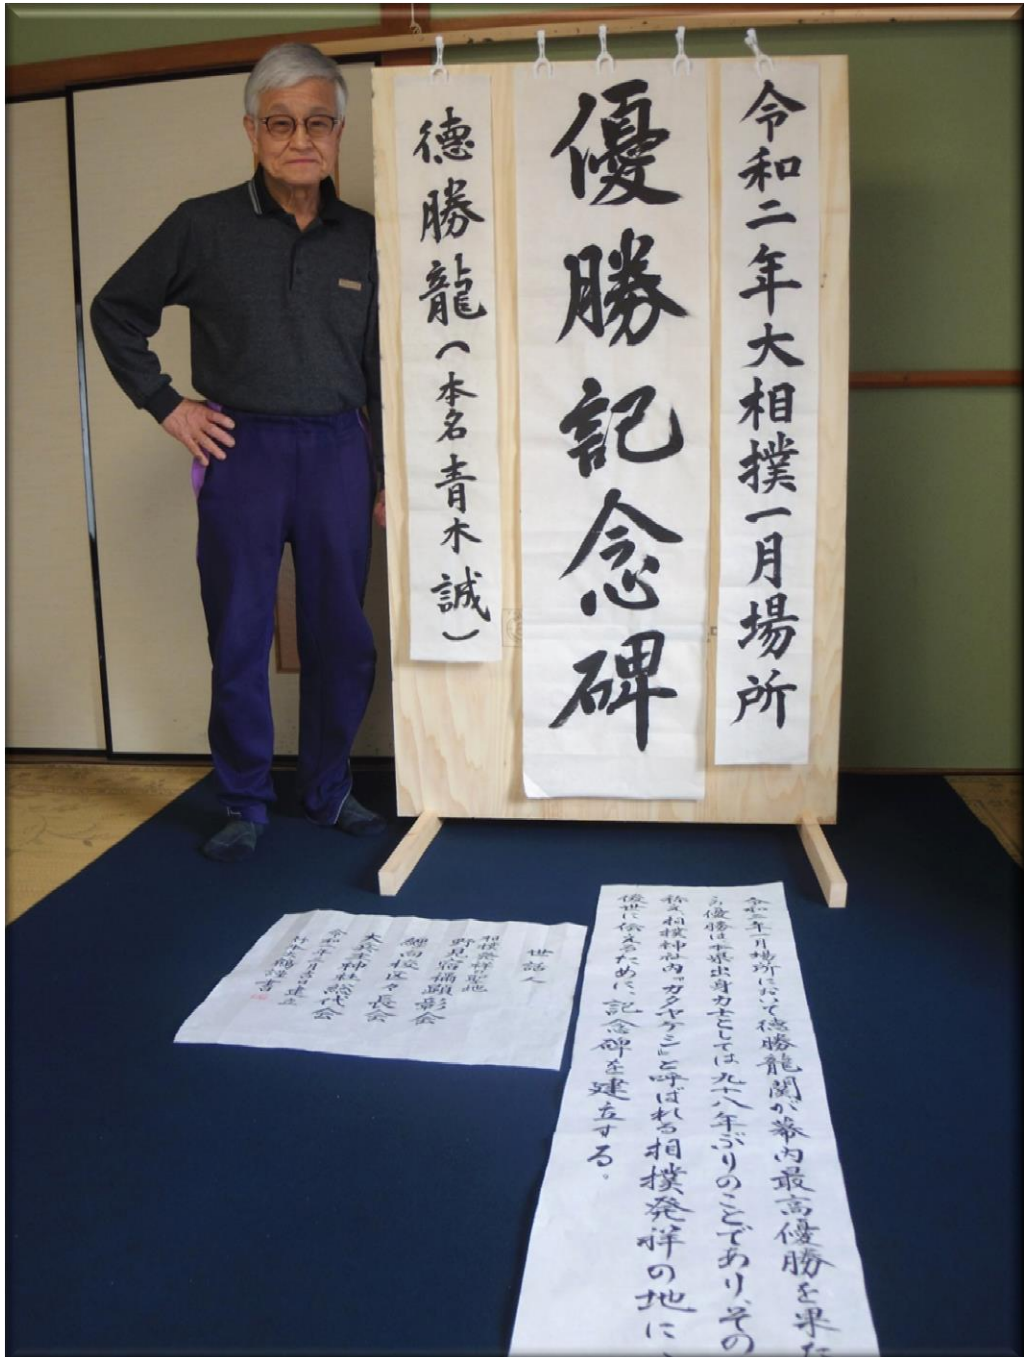 令和二年大相撲一月場所
優勝記念碑
徳勝龍(本名青木誠)
令和二年一月場所において徳勝龍関が幕内最高優勝を果た
優勝は本県出身力士としては九十八年ぶりのことであり、その
称え、相撲神社内「カタヤケシ」と呼ばれる相撲発祥の地に、
後世に伝えるために、記念碑を建立する。
世話人
相撲発祥の聖地
野見宿禰顕彰会
纒向校区々長会
大兵主神社総代会
令和二年三月吉日建立
謹書